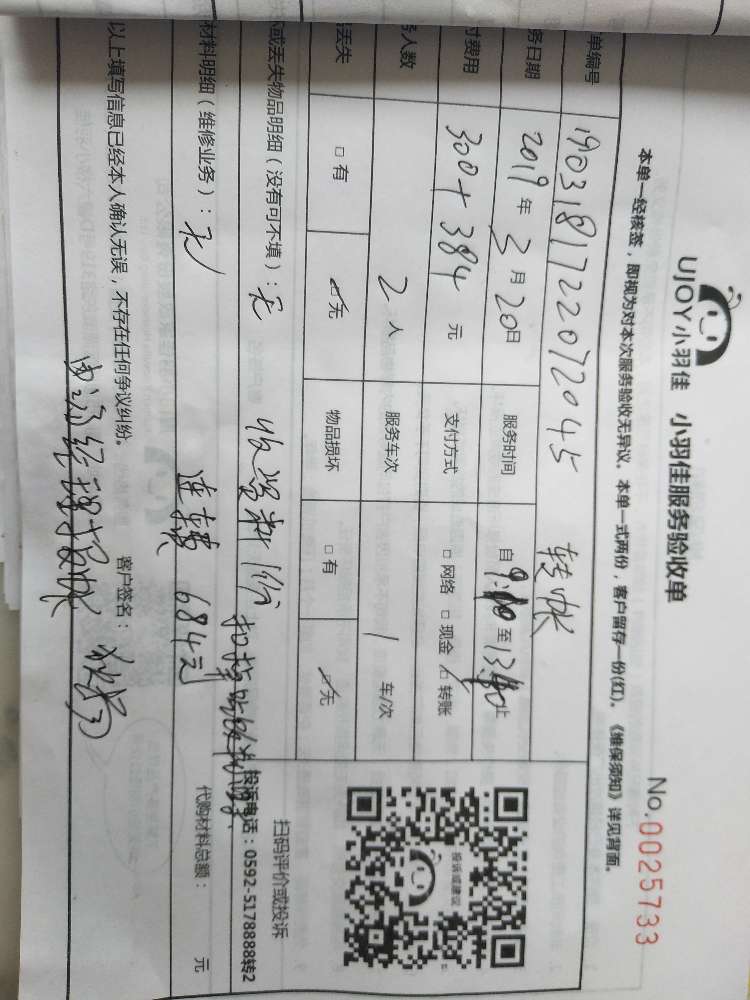 UJOY小羽佳 小羽佳服务验收单
No.0025733
本单一经核签，即视为对本次服务验收无异议。本单一式两份，客户留存一份(红)。《维保须知》详见背面。
单编号 190318172207 2045 转账
务日期 2019年3月20日 服务时间 自9:40至13:40止
付费用 300+384元 支付方式 □网络 □现金 ☑转账
务人数 2人 服务车次 1车/次
丢失 □有 ☑无 物品损坏 □有 ☑无
投诉或建议
扫码评价或投诉
投诉电话：0592-5178888转2
坏或丢失物品明细（没有可不填）：无
材料明细（维修业务）：无 684元
代购材料总额： 元
以上填写信息已经本人确认无误，不存在任何争议纠纷。 客户签名：